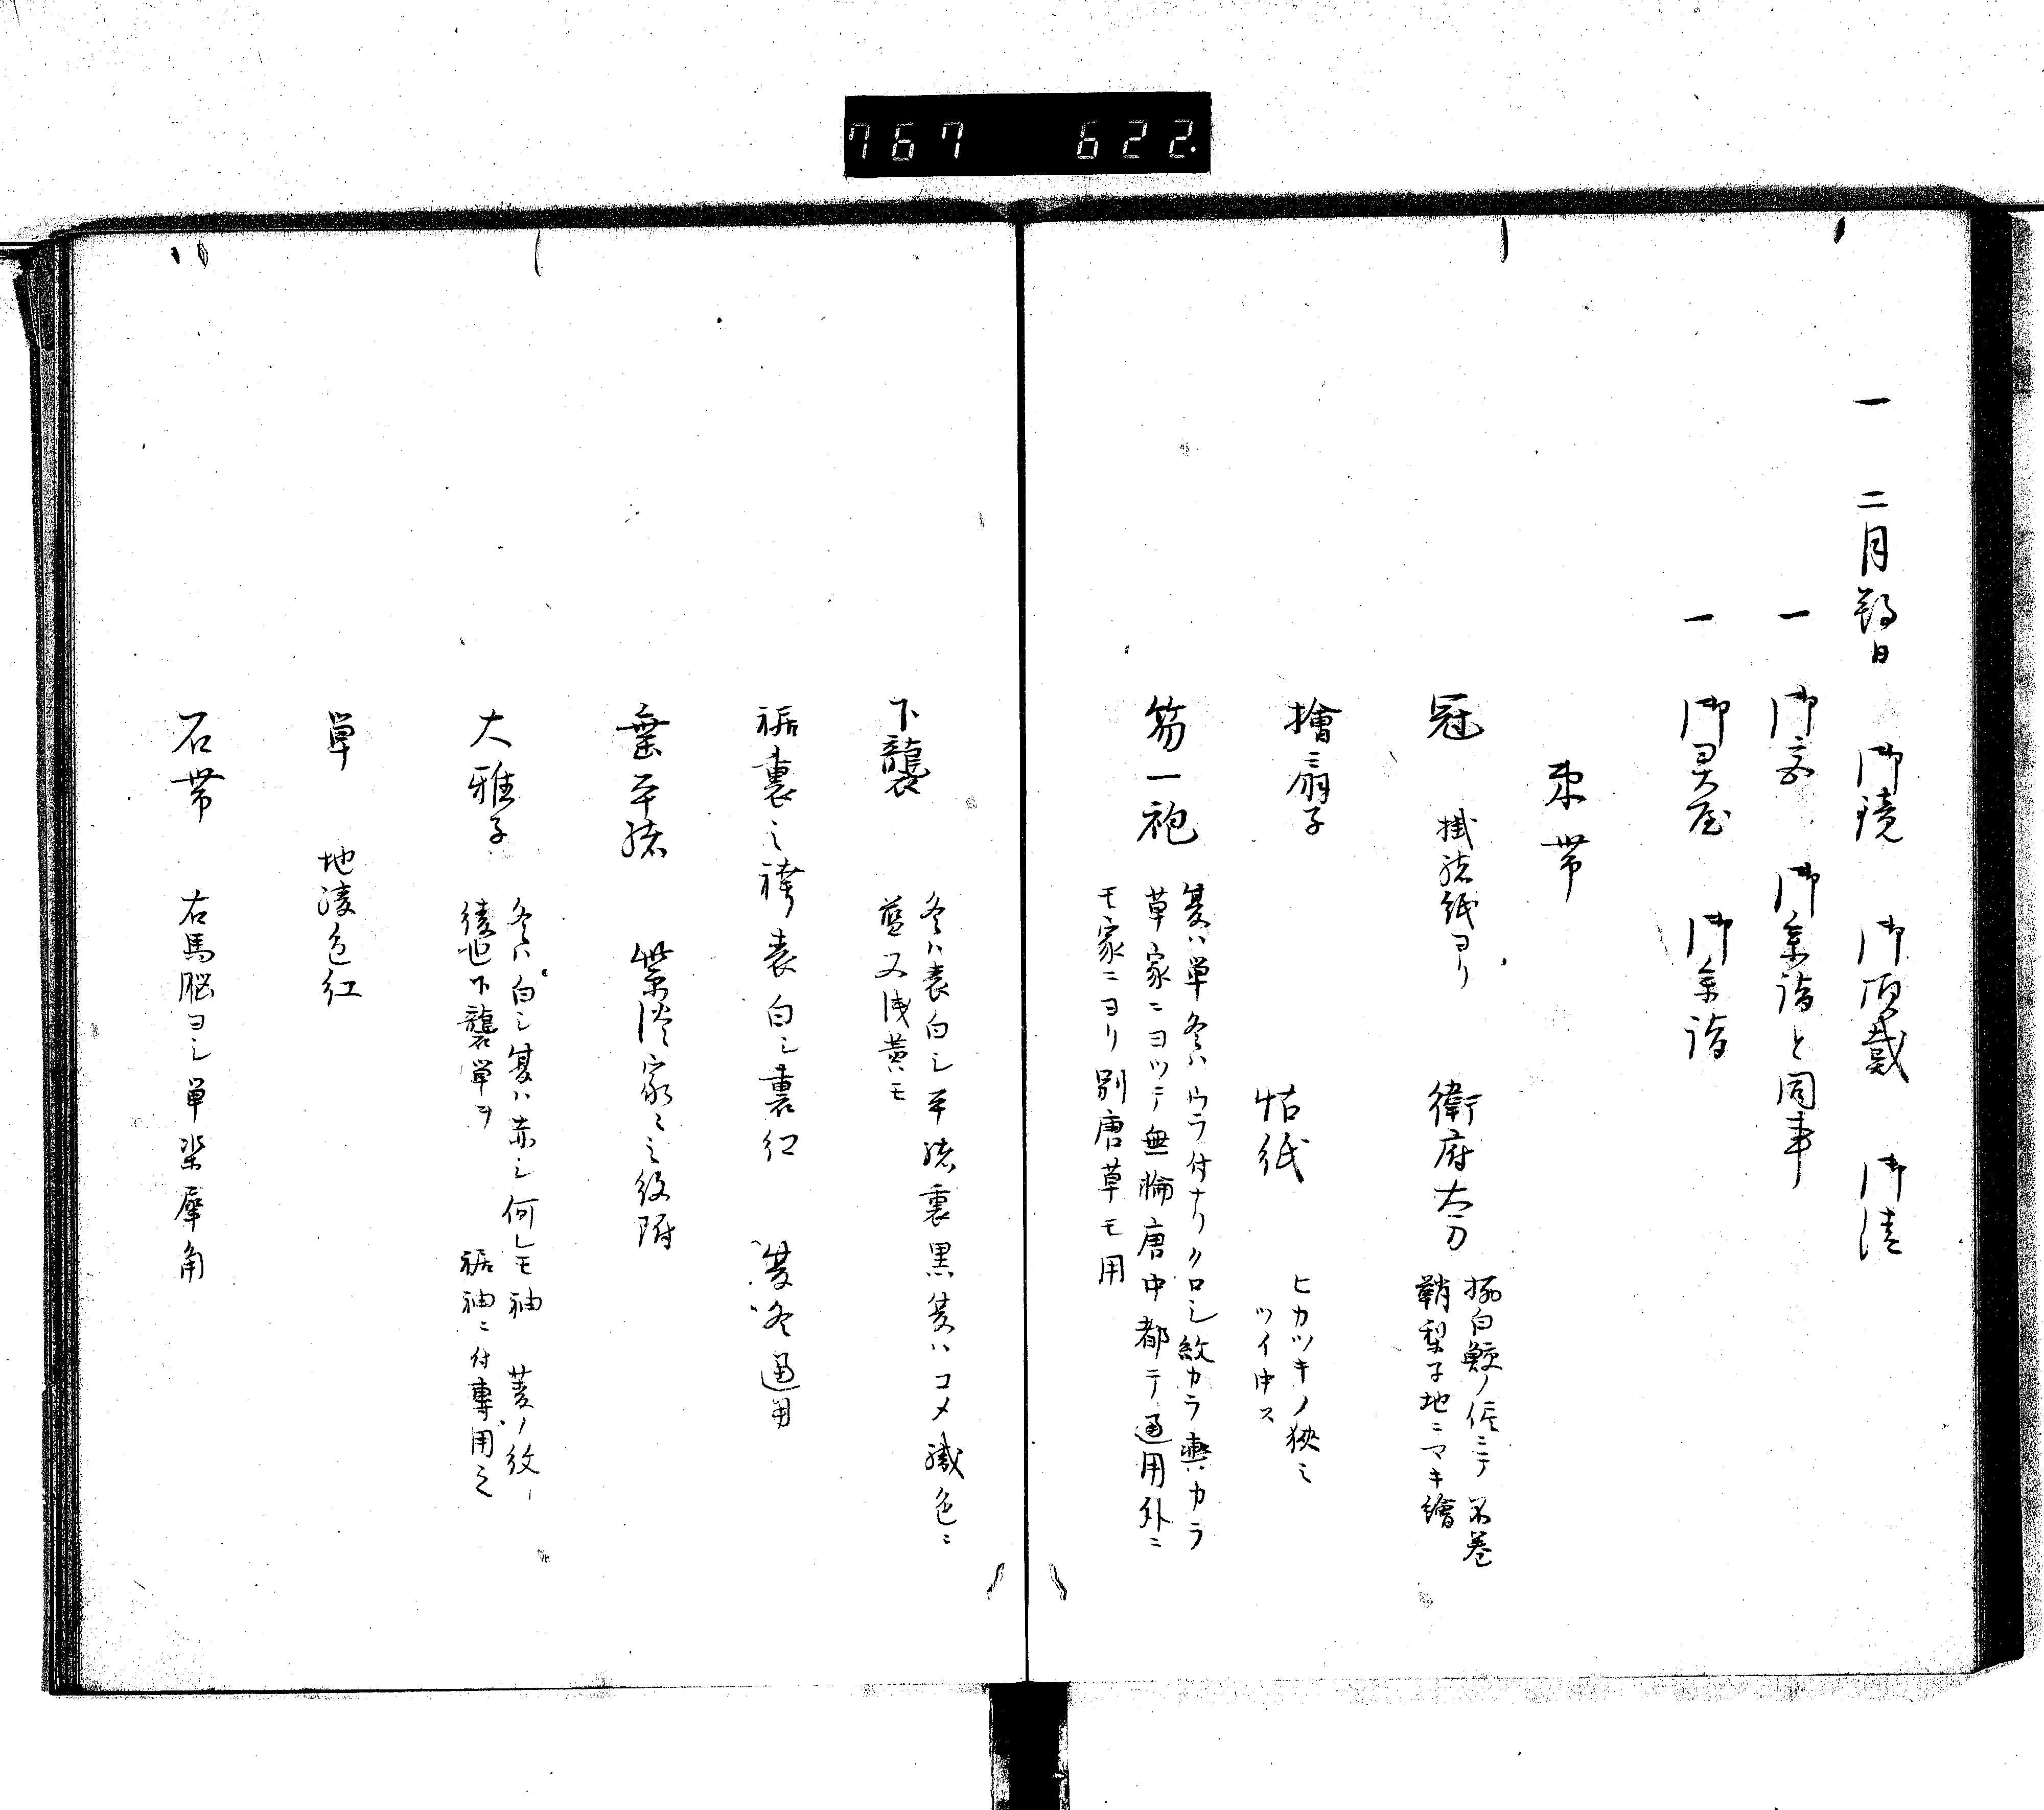 767 622.
一 二月朔日 御鏡 御頂戴 御清
一 御宮 御参詣と同事
一 御霊屋 御参詣
束帯
冠 掛緒紙ヨリ 衛府太刀
白鮫ノ
鞘梨子地ニマキ繪
檜扇子 帖紙
ヒカツキノ狭ミ
ツイ申ス
笏一袍
夏ハ単冬ハウラ付ナリクロシ紋カラ輿カラ
草家ニヨツテ無
唐中都テ通用外ニ
モ家ニヨリ別唐草モ用
下襲
冬ハ表白シ平緒裏黒夏ハコメ織色ニ
藍又浅黄モ
裾裏之袴表白シ裏紅 夏冬通用
垂平緒 紫淡家々之紋附
大雅子
冬ハ白シ夏ハ赤シ何レモ袖 菱ノ紋
綾也下襲単ヲ 裾袖ニ付専用之
単 地綾色紅
石帯 右馬脳ヨシ単
犀角